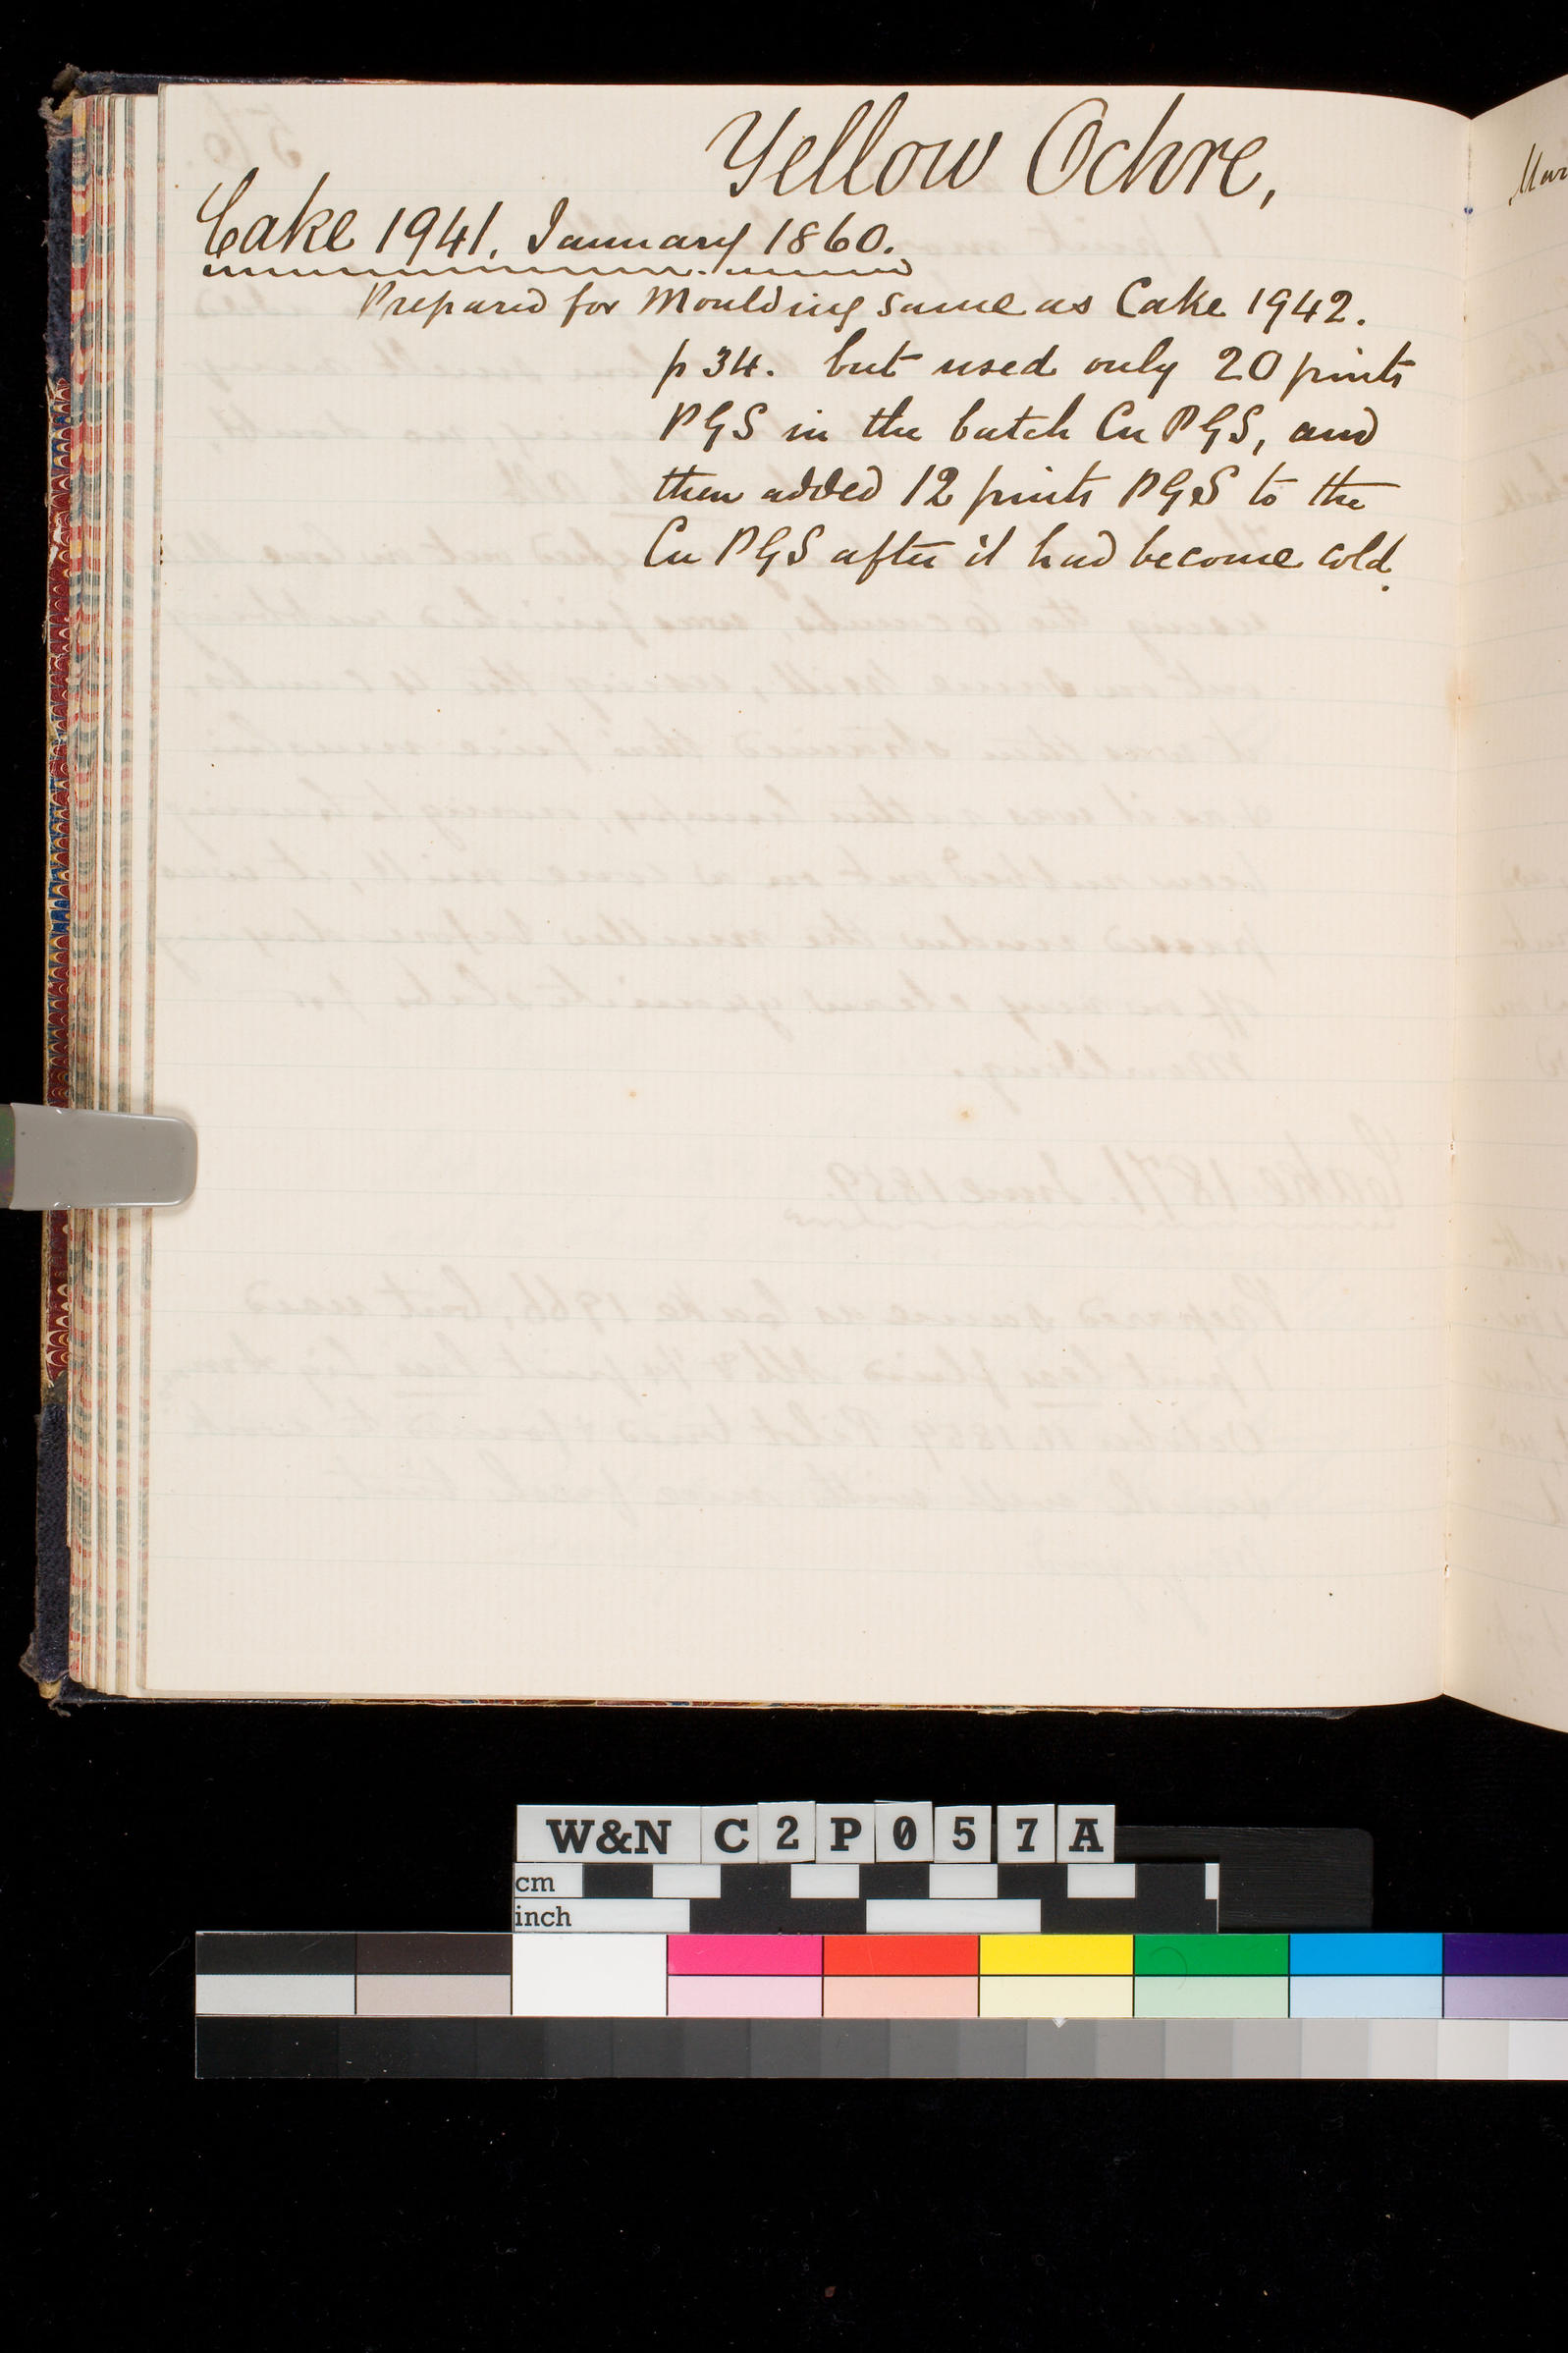 Yellow Ochre,
Cake 1941. January 1860.
Prepared for Moulding same as Cake 1942.
p 34. but used only 20 pints
PGS in the batch Cu PGS, and
then added 12 pints PGS to the
Cu PGS after it had become cold.
W&N C2P057A
cm
inch